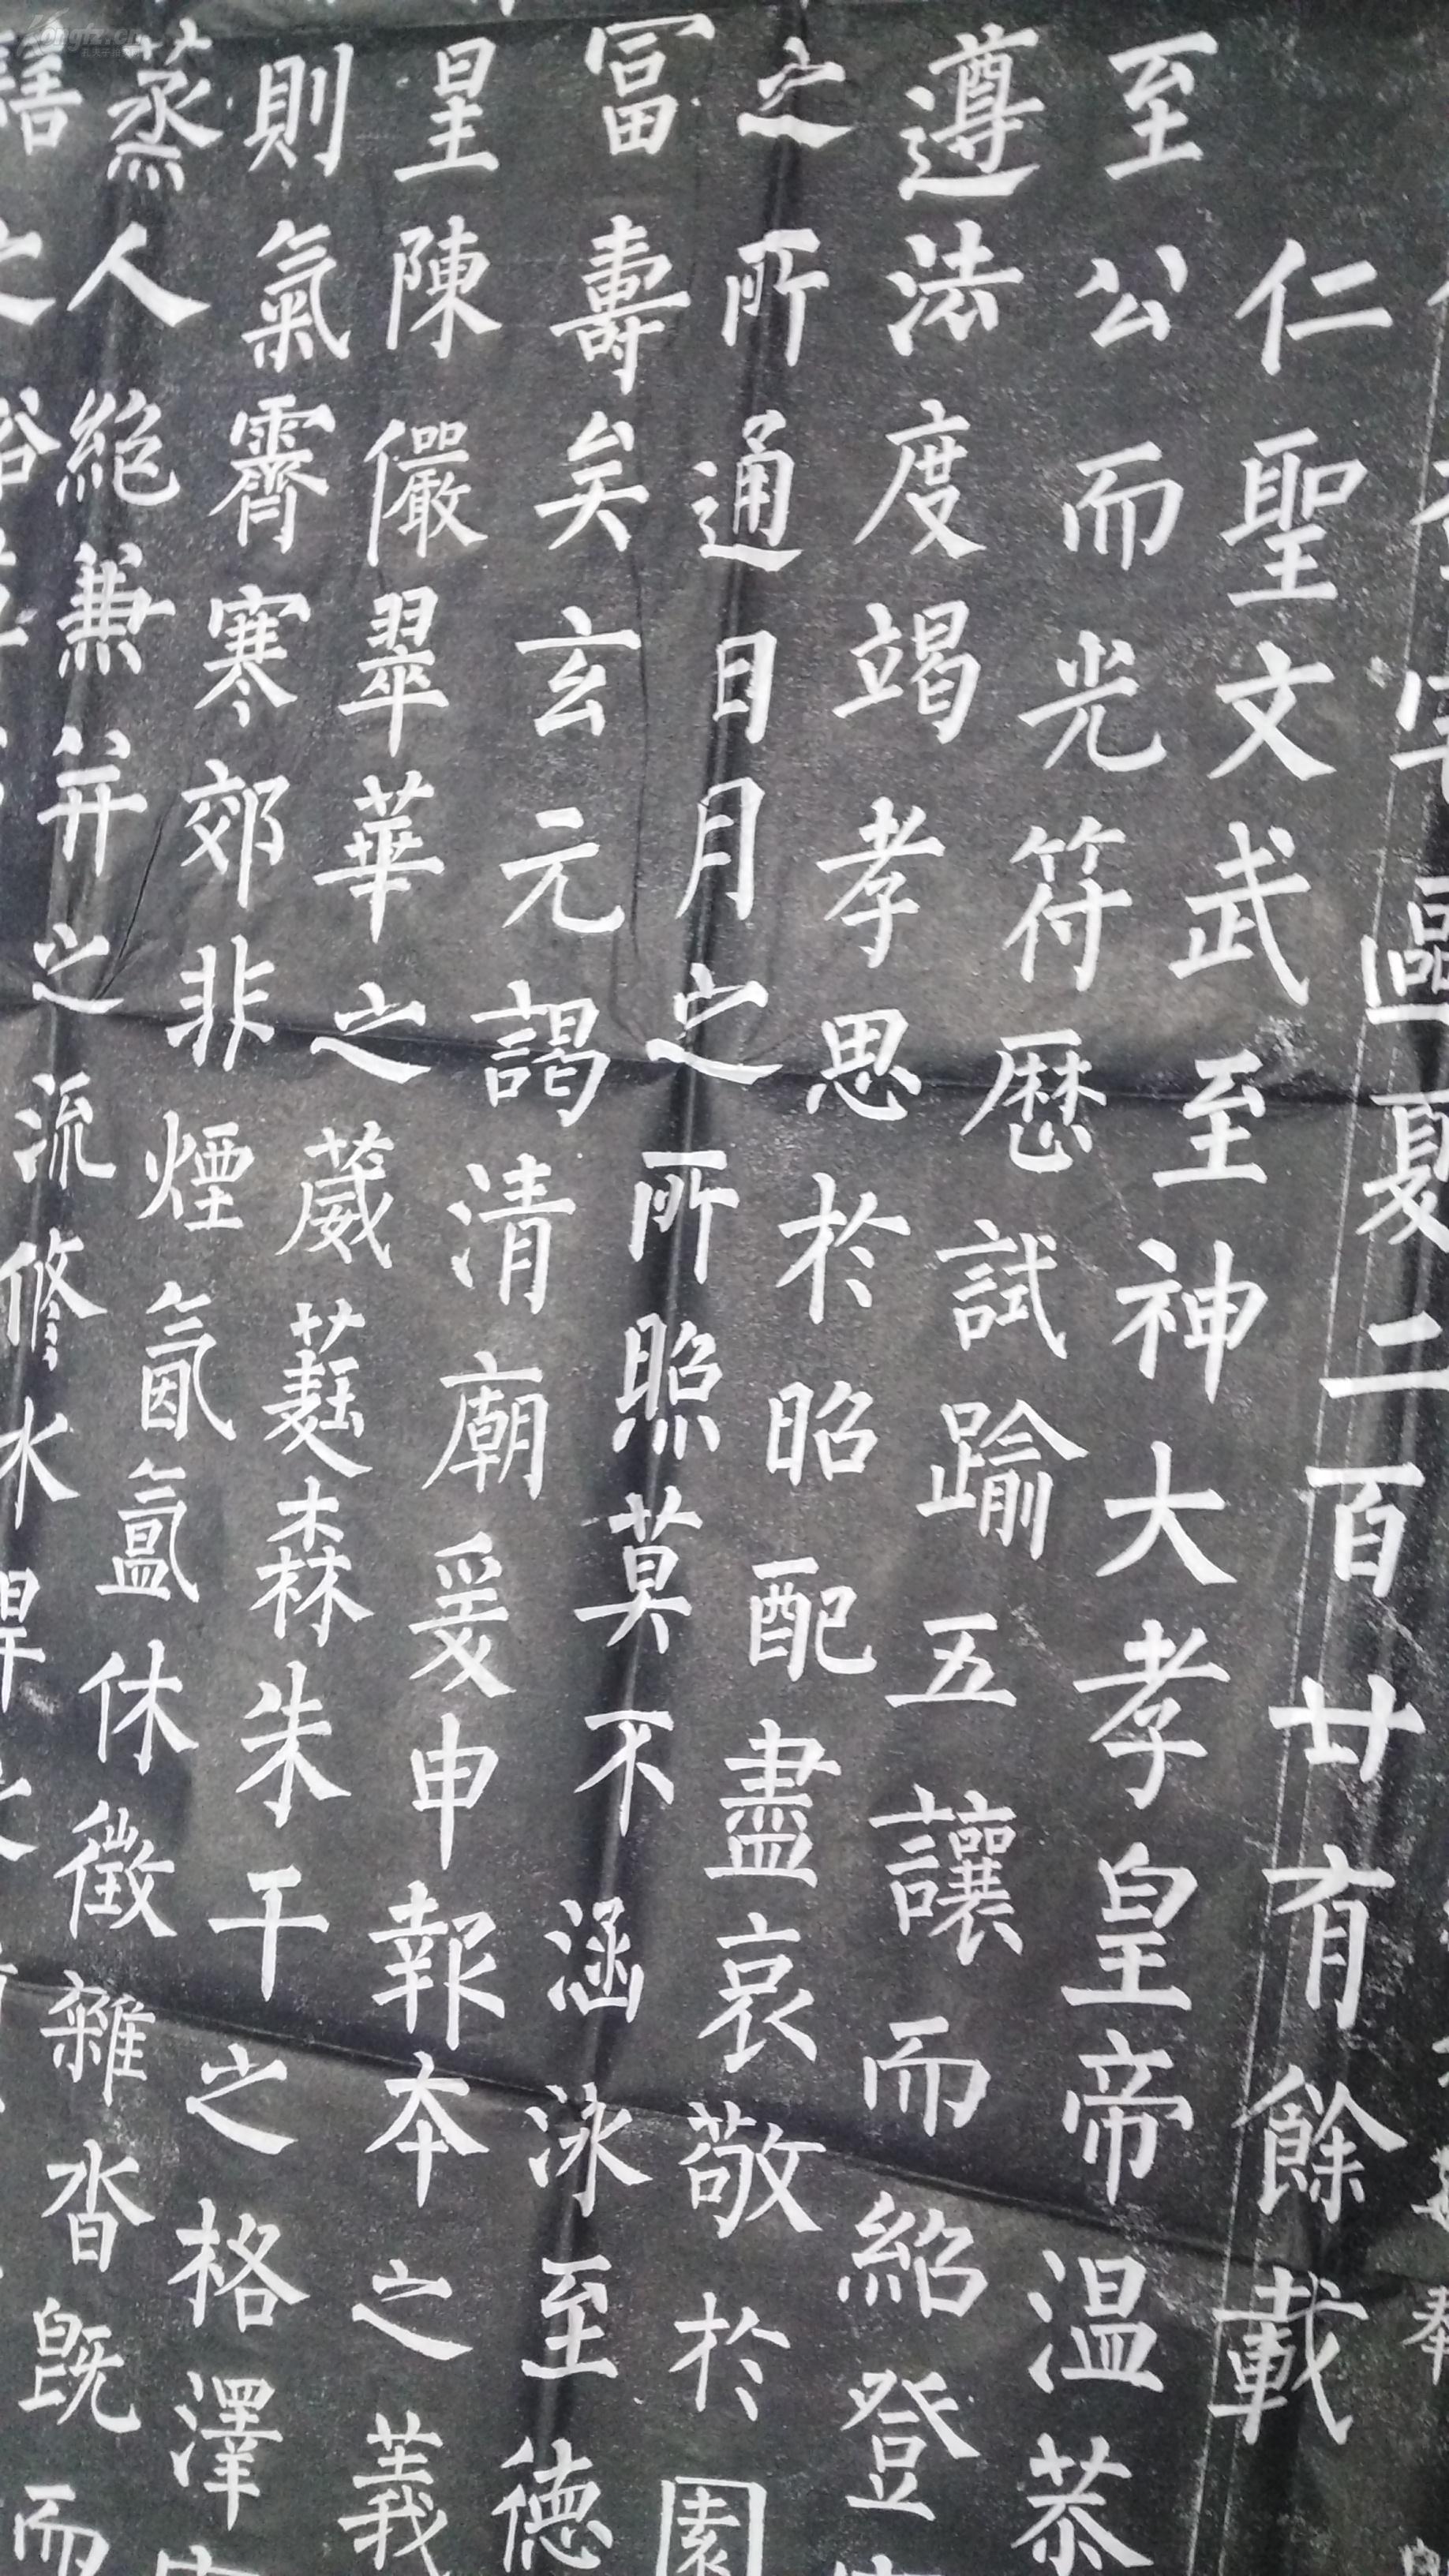 區夏二百廿有餘載
仁聖文武至神大孝皇帝温恭
至公而光符歷試踰五讓而紹登
遵法度竭孝思於昭配盡哀敬於園
之所通日月之所照莫不涵泳至德
冨壽矣玄元謁清廟爰申報本之義
星陳儼翠華之葳蕤森朱干之格澤
則氣霽寒郊非煙氤氳休徵雜沓既
蒸人絶兼并之流修水
而
Kongfz.cn